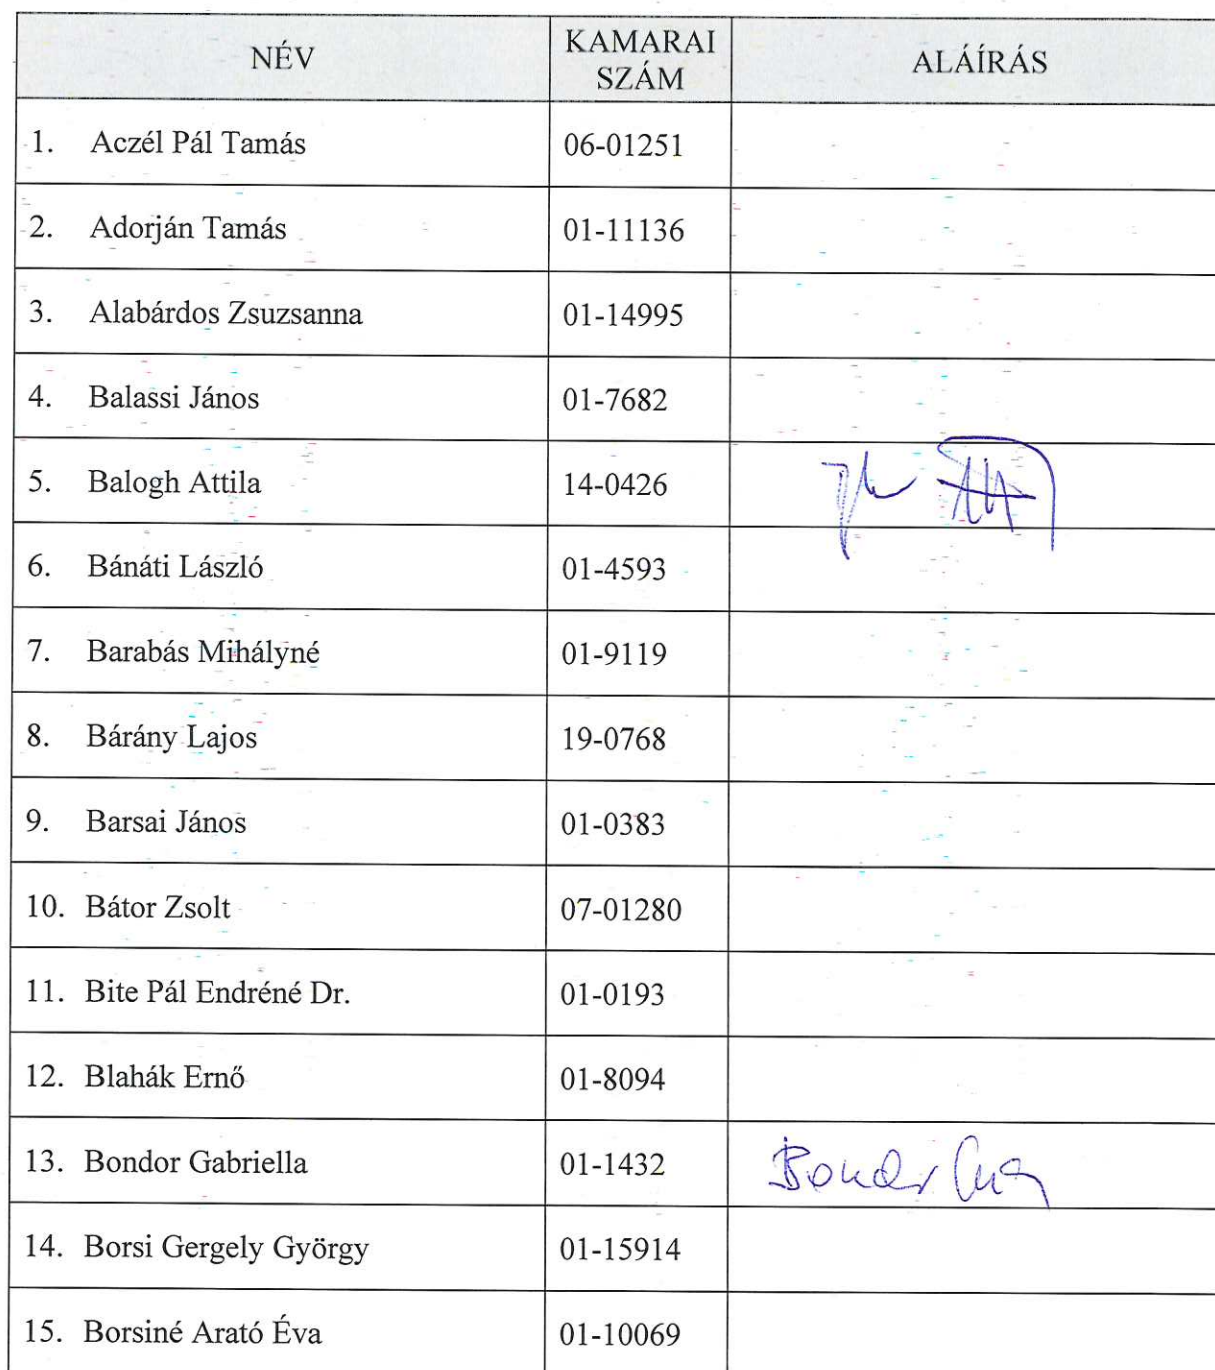 NÉV KAMARAI SZÁM ALÁÍRÁS
1. Aczél Pál Tamás 06-01251
2. Adorján Tamás 01-11136
3. Alabárdos Zsuzsanna 01-14995
4. Balassi János 01-7682
5. Balogh Attila 14-0426
6. Bánáti László 01-4593
7. Barabás Mihályné 01-9119
8. Bárány Lajos 19-0768
9. Barsai János 01-0383
10. Bátor Zsolt 07-01280
11. Bite Pál Endréné Dr. 01-0193
12. Blahák Ernő 01-8094
13. Bondor Gabriella 01-1432 Bondor
14. Borsi Gergely György 01-15914
15. Borsiné Arató Éva 01-10069